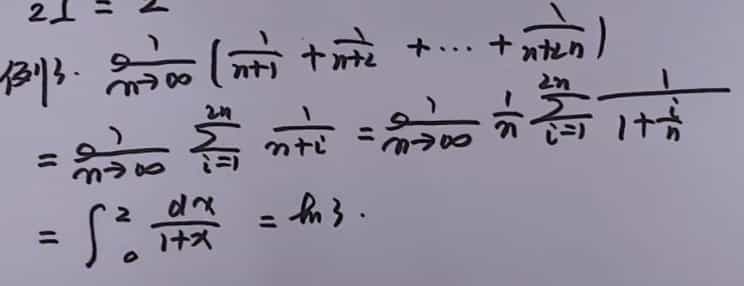 2I = 2
例3. lim n→∞ (1/(n+1) + 1/(n+2) + ... + 1/(n+2n))
= lim n→∞ ∑_{i=1}^{2n} 1/(n+i) = lim n→∞ 1/n ∑_{i=1}^{2n} 1/(1+i/n)
= ∫_0^2 dx/(1+x) = ln3.